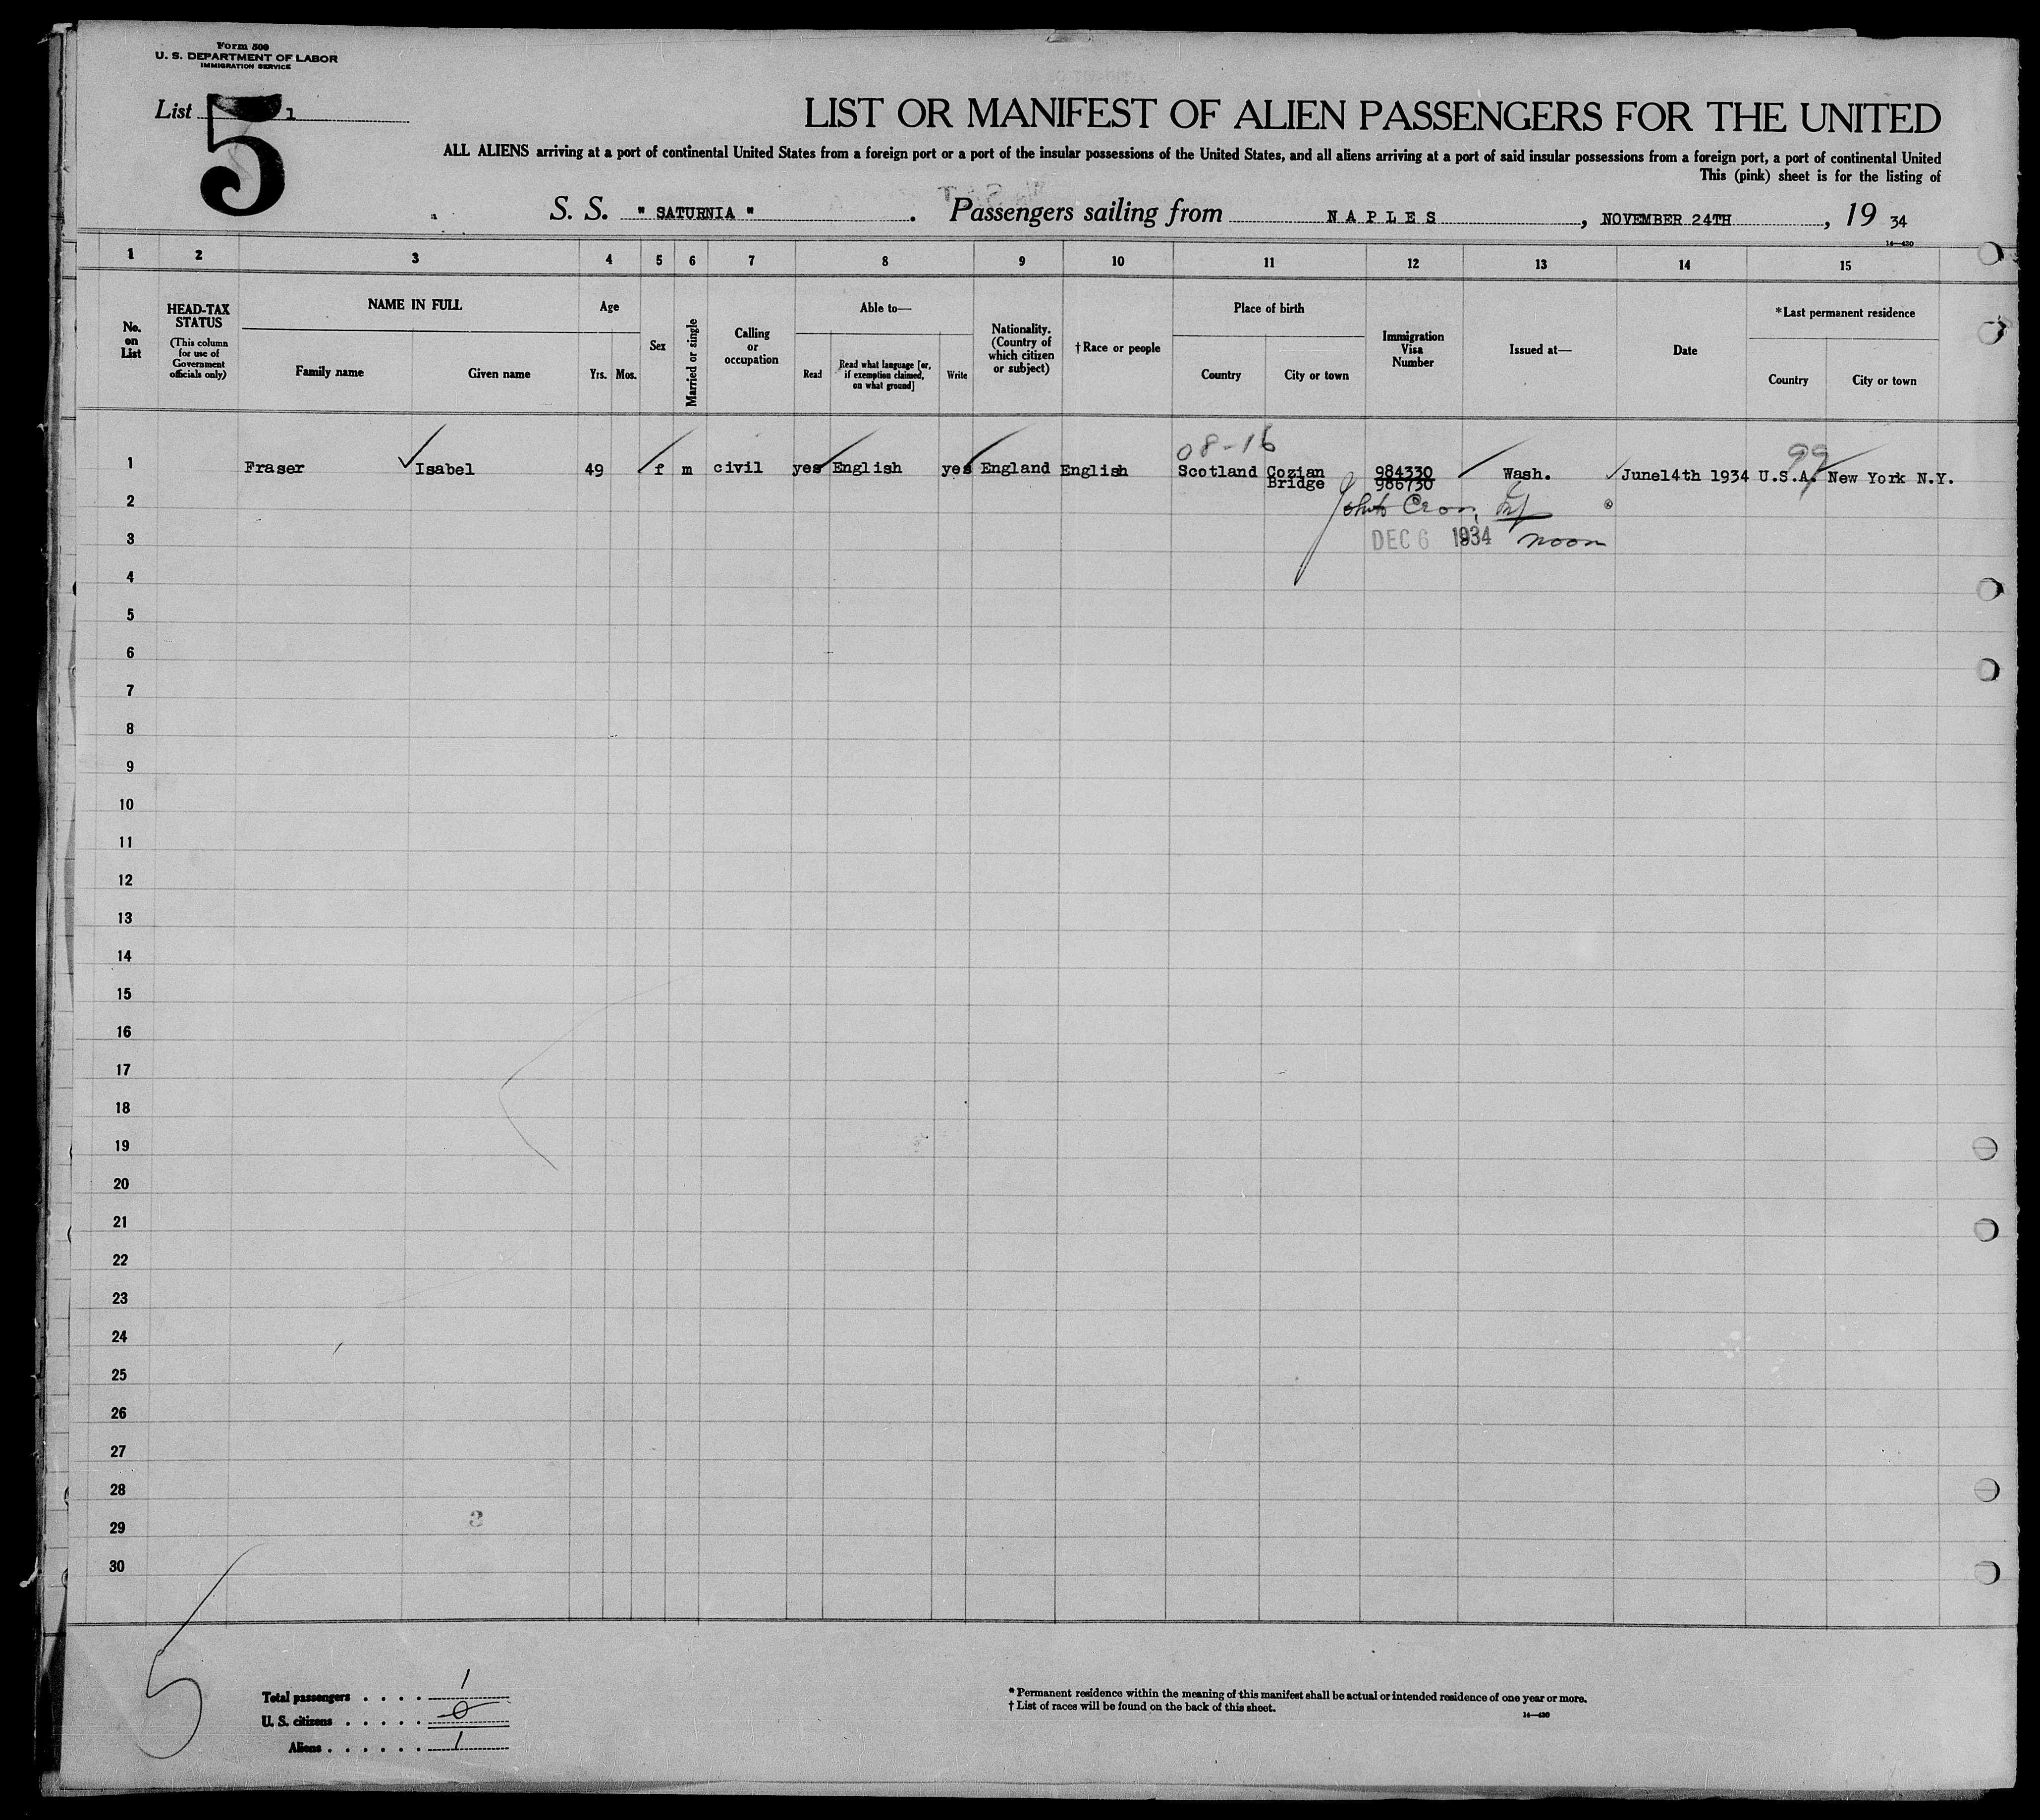 Form 500
U. S. DEPARTMENT OF LABOR
IMMIGRATION SERVICE
List 5 1
LIST OR MANIFEST OF ALIEN PASSENGERS FOR THE UNITED
ALL ALIENS arriving at a port of continental United States from a foreign port or a port of the insular possessions of the United States, and all aliens arriving at a port of said insular possessions from a foreign port, a port of continental United
This (pink) sheet is for the listing of
S. S. " SATURNIA " . Passengers sailing from N A P L E S , NOVEMBER 24TH , 19 34
14—430
1 2 3 4 5 6 7 8 9 10 11 12 13 14 15
No. on List
HEAD-TAX STATUS
(This column for use of Government officials only)
NAME IN FULL
Family name Given name
Age
Yrs. Mos.
Sex
Married or single
Calling or occupation
Able to—
Read
Read what language [or, if exemption claimed, on what ground]
Write
Nationality. (Country of which citizen or subject)
† Race or people
Place of birth
Country City or town
Immigration Visa Number
Issued at—
Date
* Last permanent residence
Country City or town
08-16 99
1 Fraser Isabel 49 f m civil yes English yes England English Scotland Cozian 984330 Wash. June14th 1934 U.S.A. New York N.Y.
Bridge 986730
2
3 DEC 6 1934 noon
4
5
6
7
8
9
10
11
12
13
14
15
16
17
18
19
20
21
22
23
24
25
26
27
28
29
3
30
5
Total passengers . . . . 1
U. S. citizens . . . . . 0
Aliens . . . . . . 1
* Permanent residence within the meaning of this manifest shall be actual or intended residence of one year or more.
† List of races will be found on the back of this sheet.
14—430